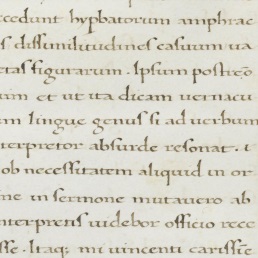 cedunt hypbatorum amphrac
s dissimilitudines casuum ua
etas figurarum. Ipsum postreō
um et ut ita dicam uernacu
m lingue genus si ad uerbum
terpretor absurde resonat. s
ob necessitatem aliquid in or
ne in sermone mutauero ab
nterpretis uidebor officio rece
sse. Itaq; mi uincenti carissiē